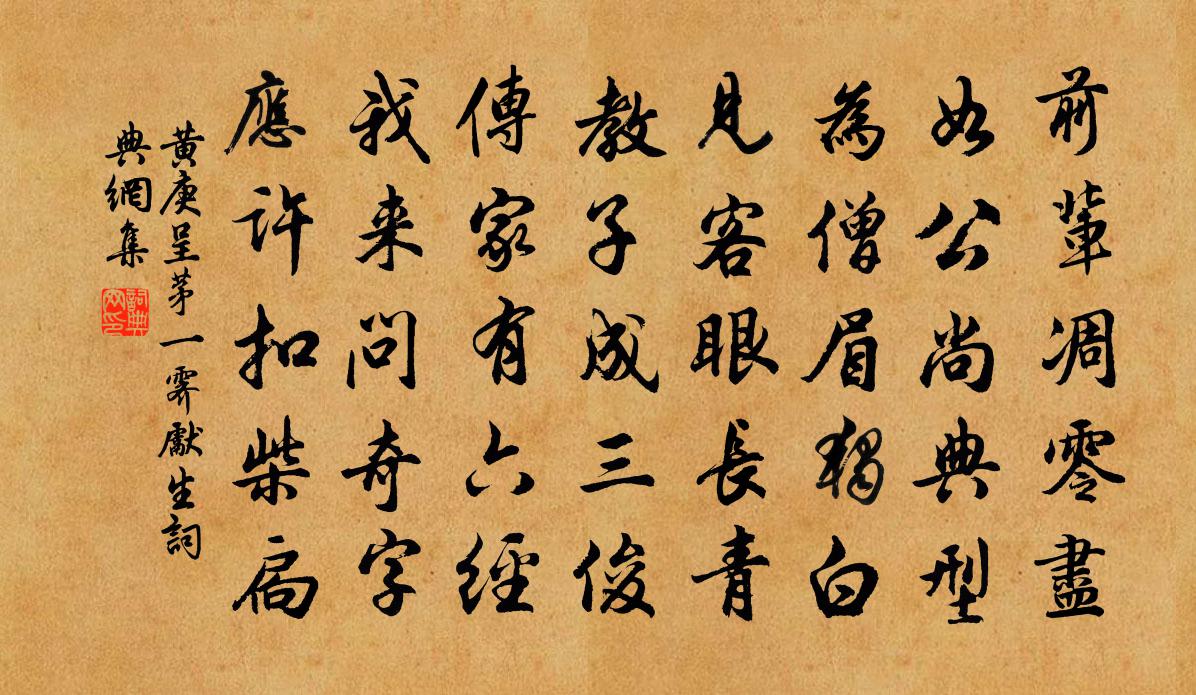 前輩凋零盡
如公尚典型
為僧眉獨白
見客眼長青
教子成三俊
傳家有六經
我来問奇字
應許扣柴扃
黃庚呈茅一霽獻生詞
典網集
詞典
网印